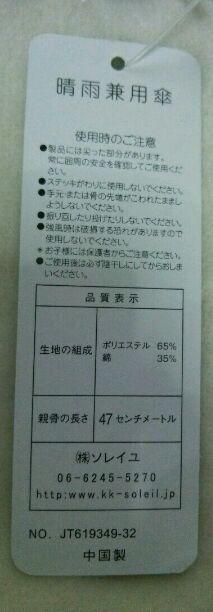 晴雨兼用傘
使用時のご注意
●製品には尖った部分があります。
常に囲周の安全を確認してご使用くだ
さい。
●ステッキがわりに使用しないでください。
●手元・または骨の先端がこわれたまま
しようしないでください。
●振り回したり投げたりしないでください。
●強風時は破損する恐れがありますので
使用しないでください。
＊お子様には保護者からご注意ください。
●ご使用後は必ず陰干しにしてからおしま
いください。
品質表示
生地の組成 ポリエステル 65%
綿 35%
親骨の長さ 47センチメートル
㈱ソレイユ
06-6245-5270
http:www.kk-soleil.jp
NO. JT619349-32
中国製